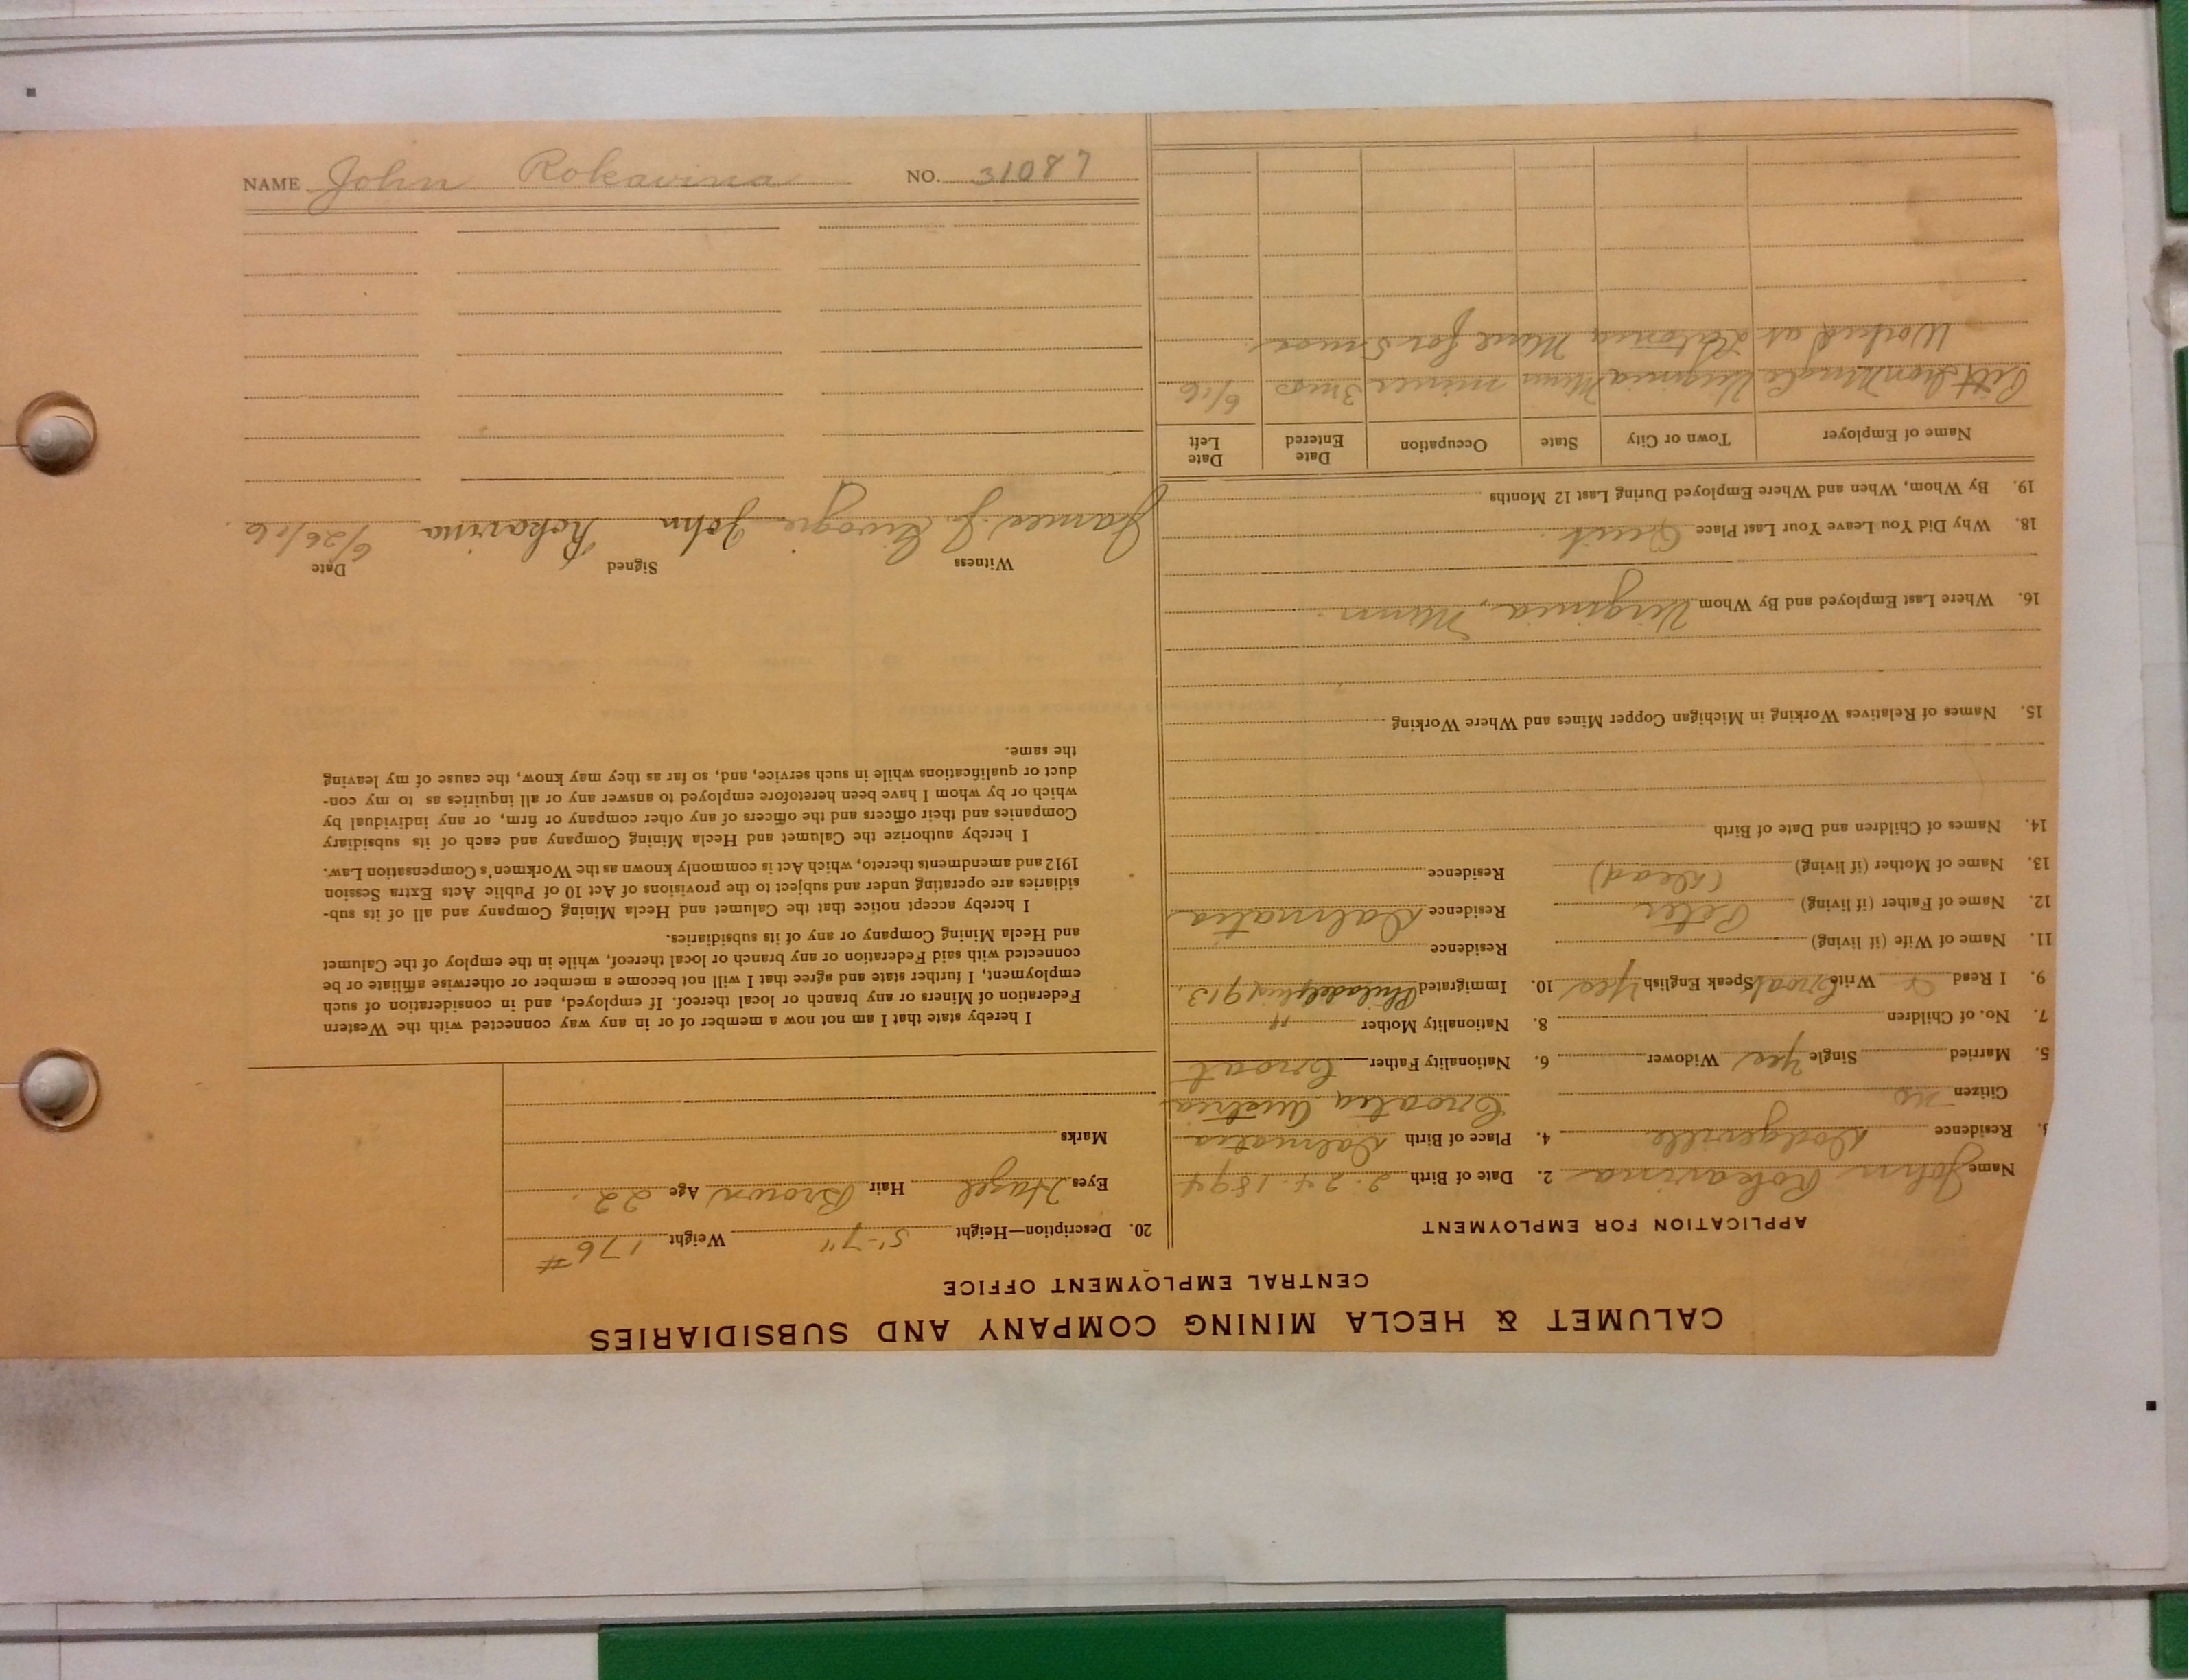 CALUMET & HECLA MINING COMPANY AND SUBSIDIARIES
CENTRAL EMPLOYMENT OFFICE
APPLICATION FOR EMPLOYMENT
Name John Rokavina 2. Date of Birth 2-24-1894
3. Residence Dodgeville 4. Place of Birth Dalmatia
Citizen no Croatia Austria
5. Married Single Yes Widower 6. Nationality Father Croat
7. No. of Children 8. Nationality Mother "
9. I Read Write Croat Speak English Yes 10. Immigrated Philadelphia 1913
11. Name of Wife (if living) Residence
12. Name of Father (if living) Peter Residence Dalmatia
13. Name of Mother (if living) (dead) Residence
14. Names of Children and Date of Birth
15. Names of Relatives Working in Michigan Copper Mines and Where Working
16. Where Last Employed and By Whom Virginia, Minn.
18. Why Did You Leave Your Last Place Quit.
19. By Whom, When and Where Employed During Last 12 Months
Name of Employer Town or City State Occupation Date Entered Date Left
Pitt Iron Mining Co Virginia Minn miner 3 mos 6/16
Worked at Mine for 5 mos.
20. Description—Height 5'-7" Weight 176 #
Eyes Hazel Hair Brown Age 22.
Marks
I hereby state that I am not now a member of or in any way connected with the Western
Federation of Miners or any branch or local thereof. If employed, and in consideration of such
employment, I further state and agree that I will not become a member or otherwise affiliate or be
connected with said Federation or any branch or local thereof, while in the employ of the Calumet
and Hecla Mining Company or any of its subsidiaries.
I hereby accept notice that the Calumet and Hecla Mining Company and all of its sub-
sidiaries are operating under and subject to the provisions of Act 10 of Public Acts Extra Session
1912 and amendments thereto, which Act is commonly known as the Workmen's Compensation Law.
I hereby authorize the Calumet and Hecla Mining Company and each of its subsidiary
Companies and their officers and the officers of any other company or firm, or any individual by
which or by whom I have been heretofore employed to answer any or all inquiries as to my con-
duct or qualifications while in such service, and, so far as they may know, the cause of my leaving
the same.
Witness Signed Date
James J. John Rokavina 6/26/16.
NAME John Rokavina NO. 31087